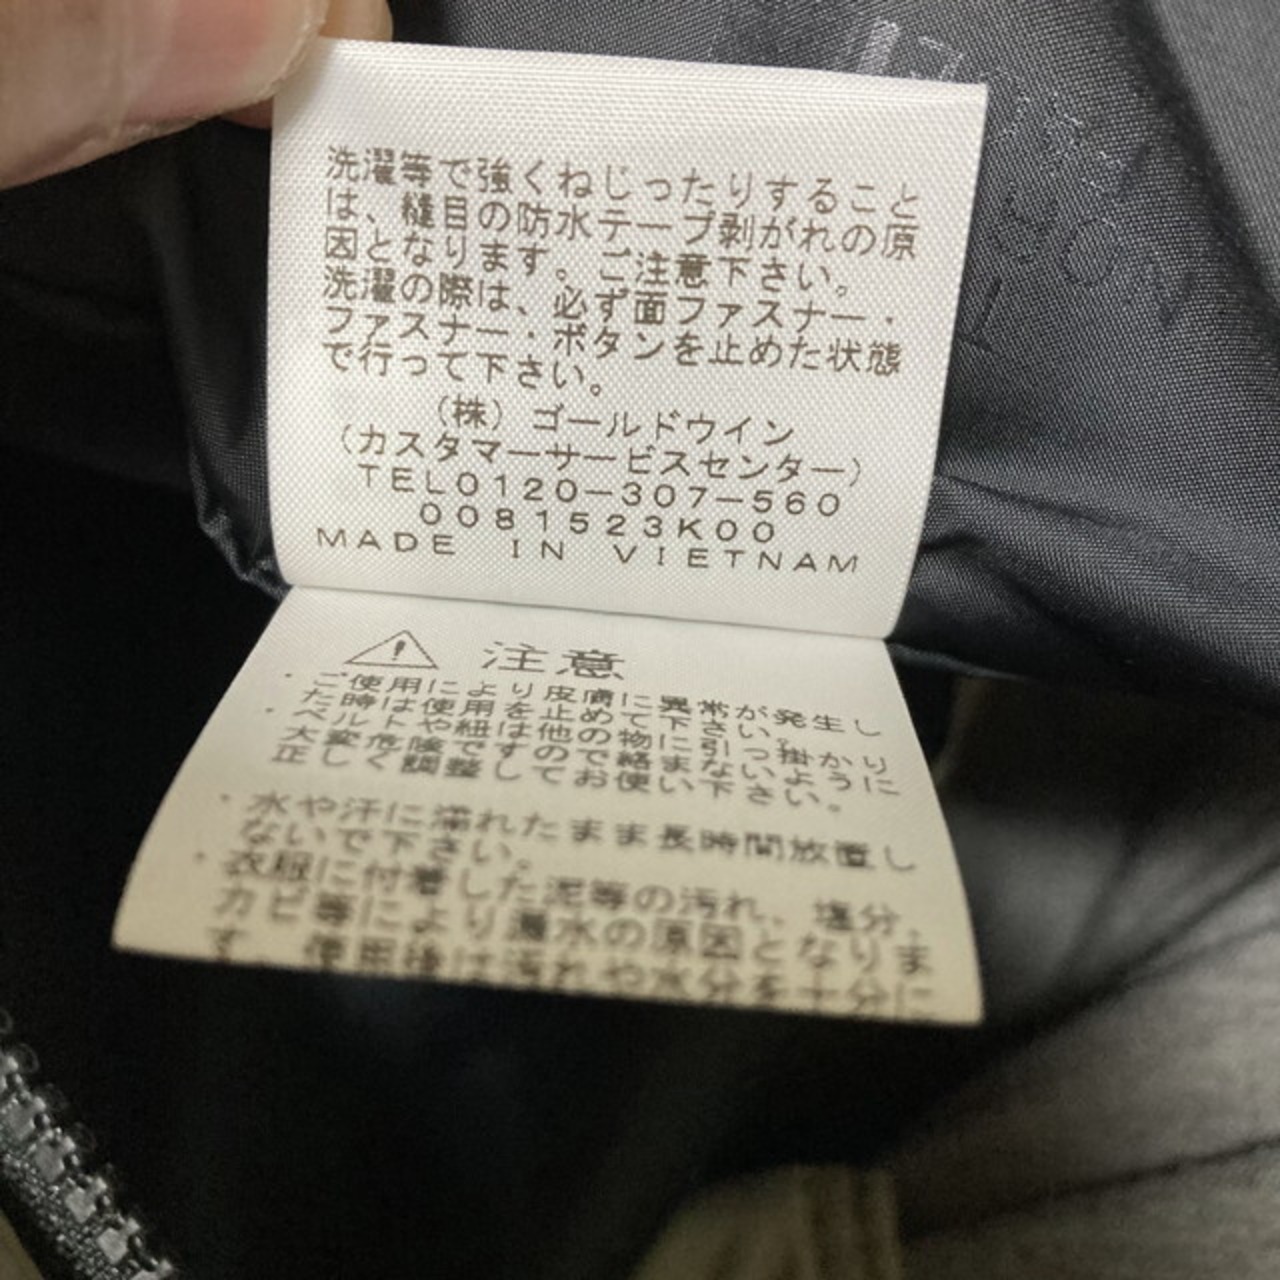 洗濯等で強くねじったりすること
は、縫目の防水テープ剥がれの原
因となります。ご注意下さい。
洗濯の際は、必ず面ファスナー・
ファスナー・ボタンを止めた状態
で行って下さい。
(株)ゴールドウイン
(カスタマーサービスセンター)
TEL0120-307-560
0081523K00
MADE IN VIETNAM
注意
・ご使用により皮膚に異常が発生し
た時は使用を止めて下さい。
・ベルトや紐は他の物に引っ掛かり
大変危険ですので絡まないように
正しく調整してお使い下さい。
・水や汗に濡れたまま長時間放置し
ないで下さい。
・衣服に付着した泥等の汚れ、塩分、
カビ等により漏水の原因となりま
す。使用後は汚れや水分を十分に